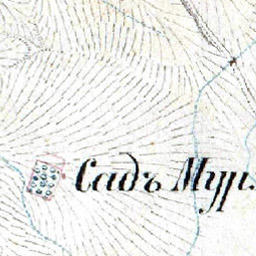 Садъ Мур